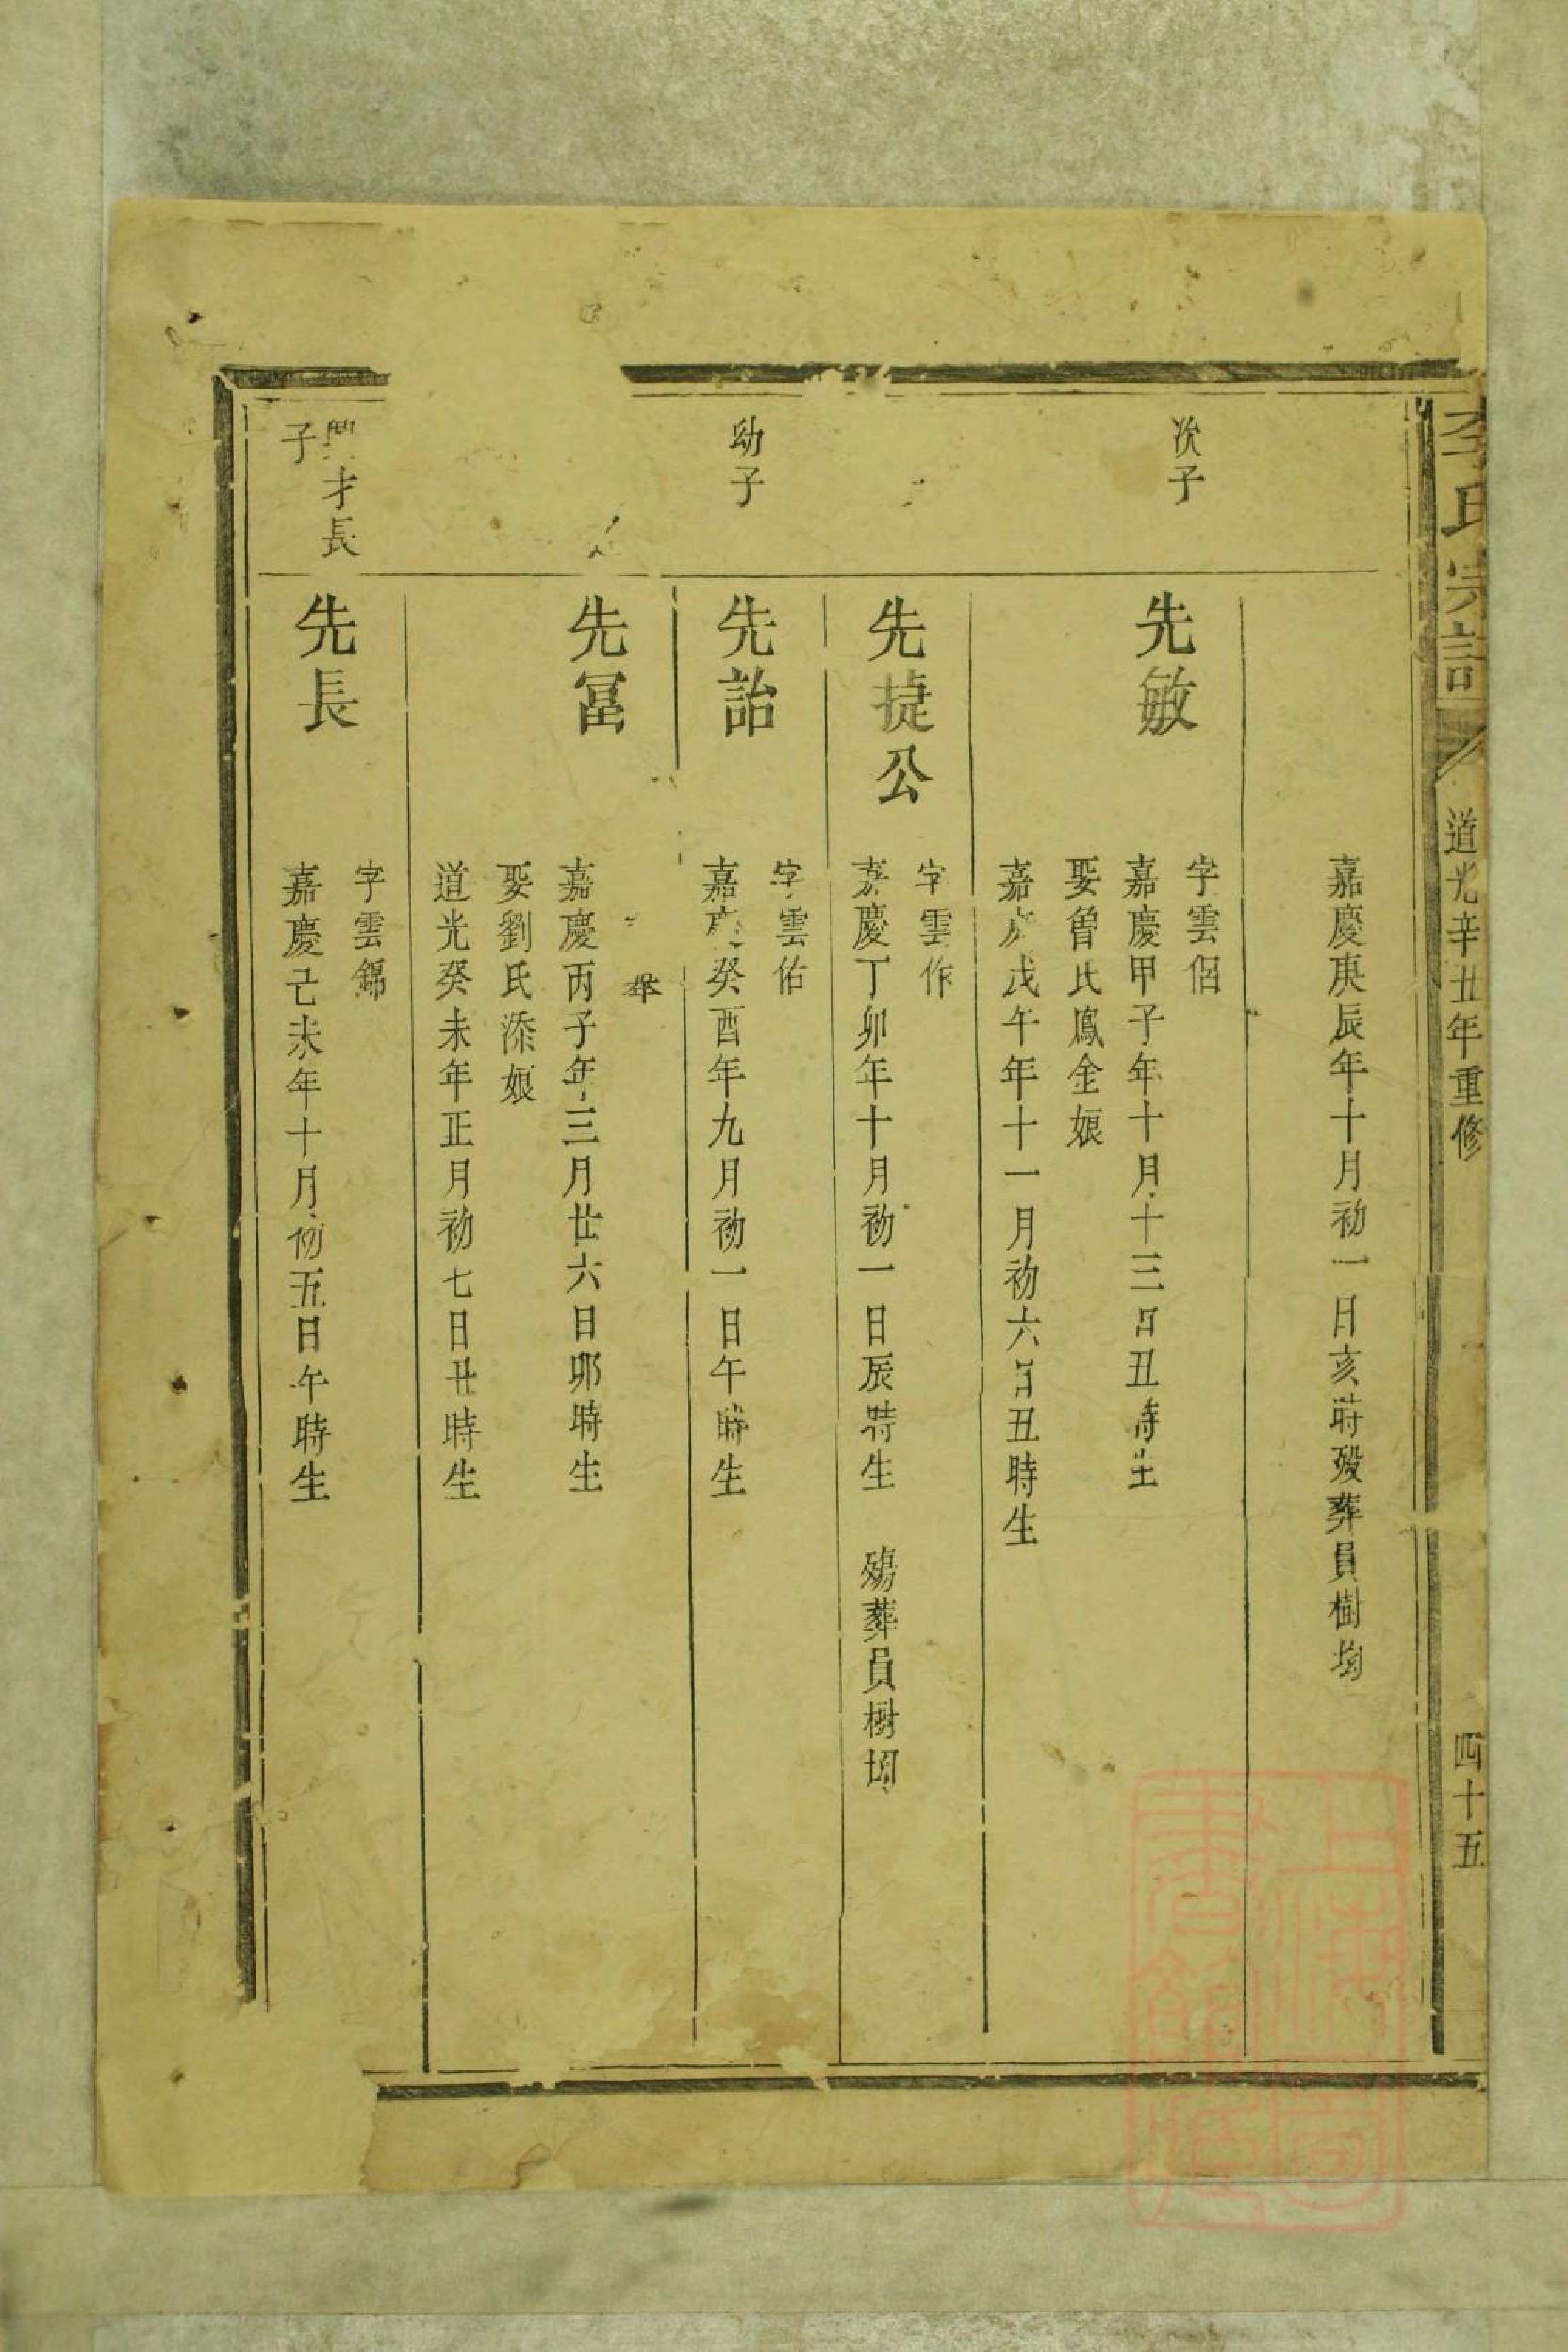 李氏宗譜
道光辛丑年重修
四十五
嘉慶庚辰年十月初一日亥時歿葬員樹坳
次子
先敏
字雲侶
嘉慶甲子年十月十三日丑時生
娶曾氏鳳金娘
嘉慶戊午年十一月初六日丑時生
先捷公
字雲作
嘉慶丁卯年十月初一日辰時生 殤葬員樹坳
幼子
先詒
字雲佑
嘉慶癸酉年九月初一日午時生
先冨
嘉慶丙子年三月廿六日卯時生
娶劉氏添娘
道光癸未年正月初七日丑時生
才長
子
先長
字雲錦
嘉慶己未年十月初五日午時生
上海圖書館藏